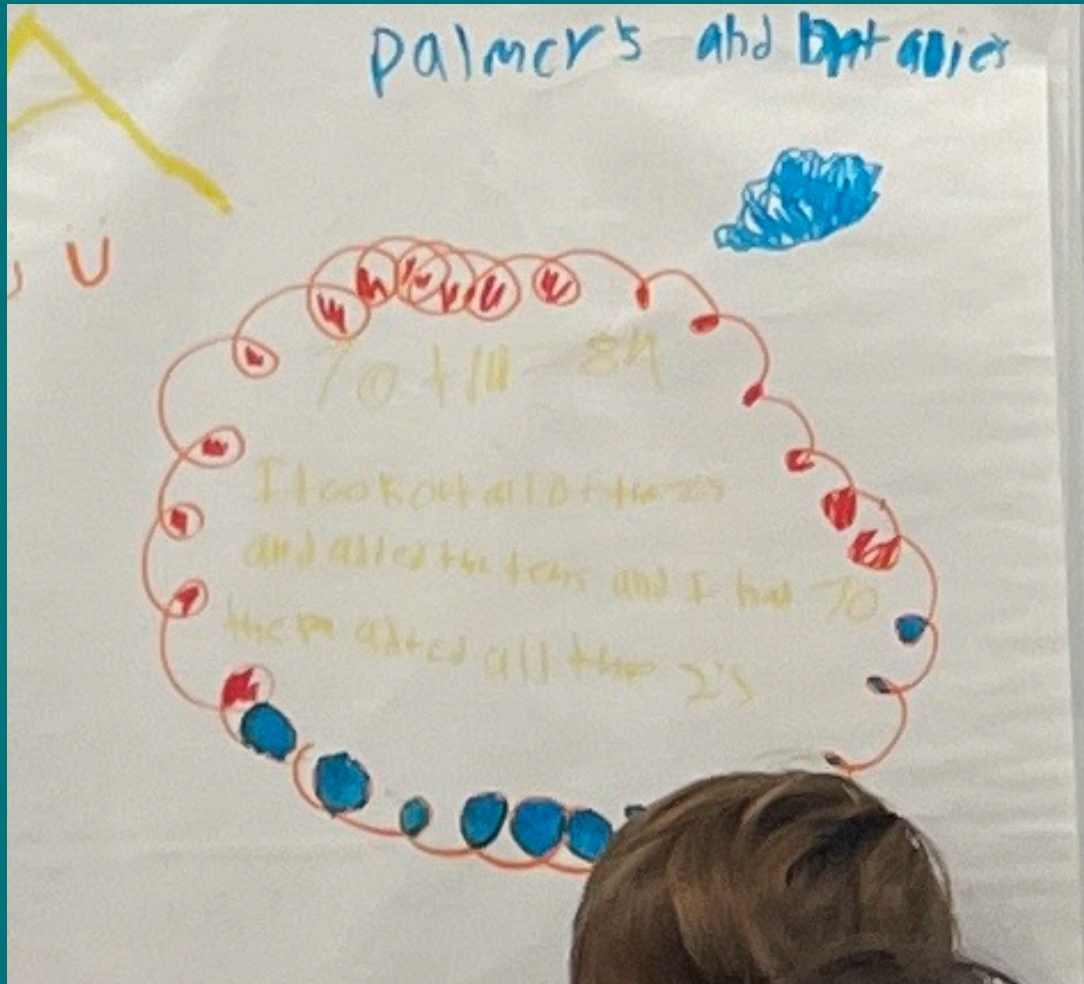 palmer's and
U
70 + 14 84
I took out all of the
and added the tens and I had 70
then added all the 2's